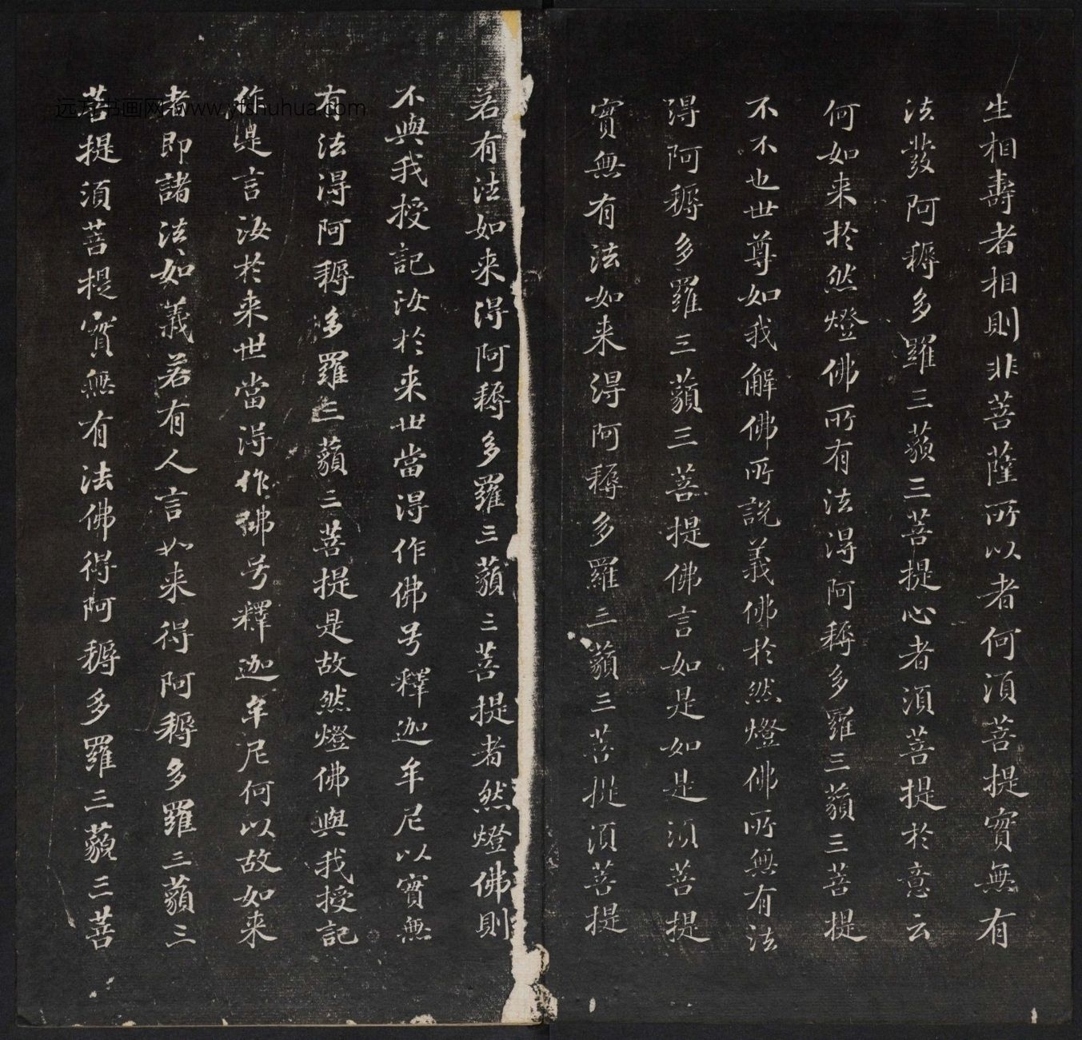 生相壽者相則非菩薩所以者何須菩提實無有
法發阿耨多羅三藐三菩提心者須菩提於意云
何如来於然燈佛所有法得阿耨多羅三藐三菩提
不不也世尊如我解佛所說義佛於然燈佛所無有法
得阿耨多羅三藐三菩提佛言如是如是須菩提
實無有法如来得阿耨多羅三藐三菩提須菩提
若有法如来得阿耨多羅三藐三菩提者然燈佛則
不與我授記汝於来世當得作佛号釋迦牟尼以實無
有法得阿耨多羅三藐三菩提是故然燈佛與我授記
作是言汝於来世當得作佛号釋迦牟尼何以故如来
者即諸法如義若有人言如来得阿耨多羅三藐三
菩提須菩提實無有法佛得阿耨多羅三藐三菩